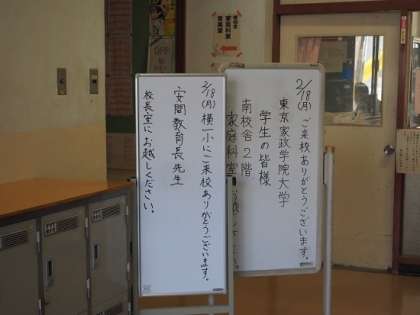 2/18(月)ご来校ありがとうございます。
東京家政学院大学
学生の皆様
南校舎2階
家庭科室
2/18(月)横一小にご来校ありがとうございます。
安間教育長先生
校長室にお越しください。